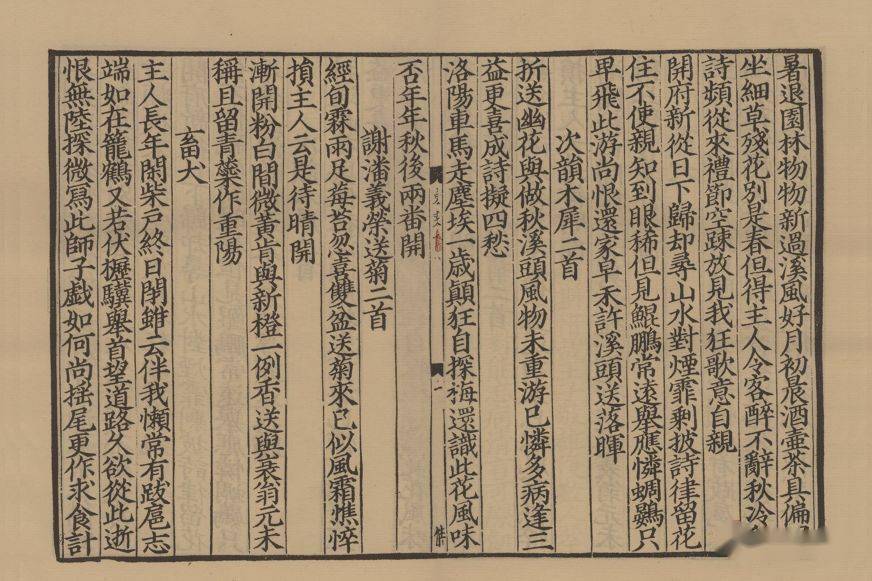 暑退園林物物新過溪風好月初晨酒壷茶具偏
坐細草殘花別是春但得主人令客醉不辭秋冷
詩頻從來禮節空疎放見我狂歌意自親
開府新從日下歸却尋山水對煙霏剩披詩律留花
住不使親知到眼稀但見鯤鵬常遠舉應憐蜩鷃只
卑飛此游尚恨還家早未許溪頭送落暉
次韻木犀二首
折送幽花與做秋溪頭風物未重游已憐多病逢三
益更喜成詩擬四愁
洛陽車馬走塵埃一歲顛狂自探梅還識此花風味
否年年秋後兩番開
謝潘義榮送菊二首
經旬霖雨足莓苔忽喜雙盆送菊來已似風霜憔悴
損主人云是待晴開
漸開粉白間微黃肯與新橙一例香送與衰翁元未
稱且留青蘂作重陽
畜犬
主人長年閑柴戸終日閉雖云伴我懶常有跋扈志
端如在籠鶴又若伏櫪驥舉首望道路久欲從此逝
恨無陸探微寫此師子戱如何尚摇尾更作求食計